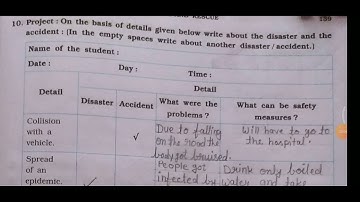 RESCUE
139
10. Project : On the basis of details given below write about the disaster and the
accident : (In the empty spaces write about another disaster/accident.)
Name of the student :
Date : Day : Time :
Detail
Detail
Disaster Accident What were the problems ? What can be safety measures ?
Collision with a vehicle. √ Due to falling on the road the body got bruised. Will have to go to the hospital.
Spread of an epidemic. ✓ People got infected by Drink only boiled water and take